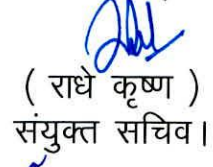 ( राधे कृष्ण )
संयुक्त सचिव।